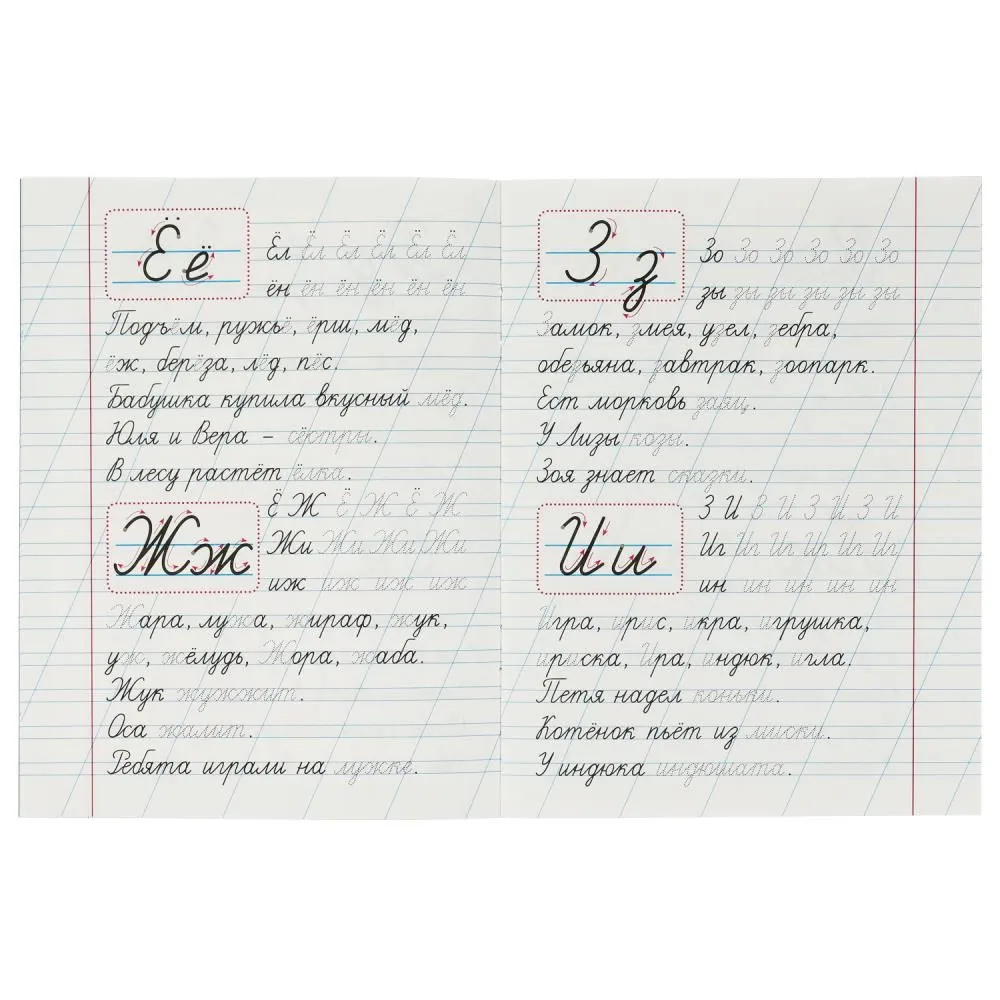 Ё ё
Ёл Ёл Ёл Ёл Ёл Ёл
ён ён ён ён ён ён
Подъём, ружьё, ёрш, мёд,
ёж, берёза, лёд, пёс.
Бабушка купила вкусный мёд.
Юля и Вера – сёстры.
В лесу растёт ёлка.
Ж ж
Ё Ж Ё Ж Ё Ж
Жи Жи Жи Жи
иж иж иж иж
Жара, лужа, жираф, жук,
уж, жёлудь, Жора, жаба.
Жук жужжит.
Оса жалит.
Ребята играли на лужке.
З з
Зо Зо Зо Зо Зо Зо
зы зы зы зы зы зы
Замок, змея, узел, зебра,
обезьяна, завтрак, зоопарк.
Ест морковь заяц.
У Лизы козы.
Зоя знает сказки.
И и
З И В И З И З И
Иг Иг Иг Иг Иг Иг
ин ин ин ин ин
Игра, ирис, икра, игрушка,
ириска, Ира, индюк, игла.
Петя надел коньки.
Котёнок пьёт из миски.
У индюка индюшата.